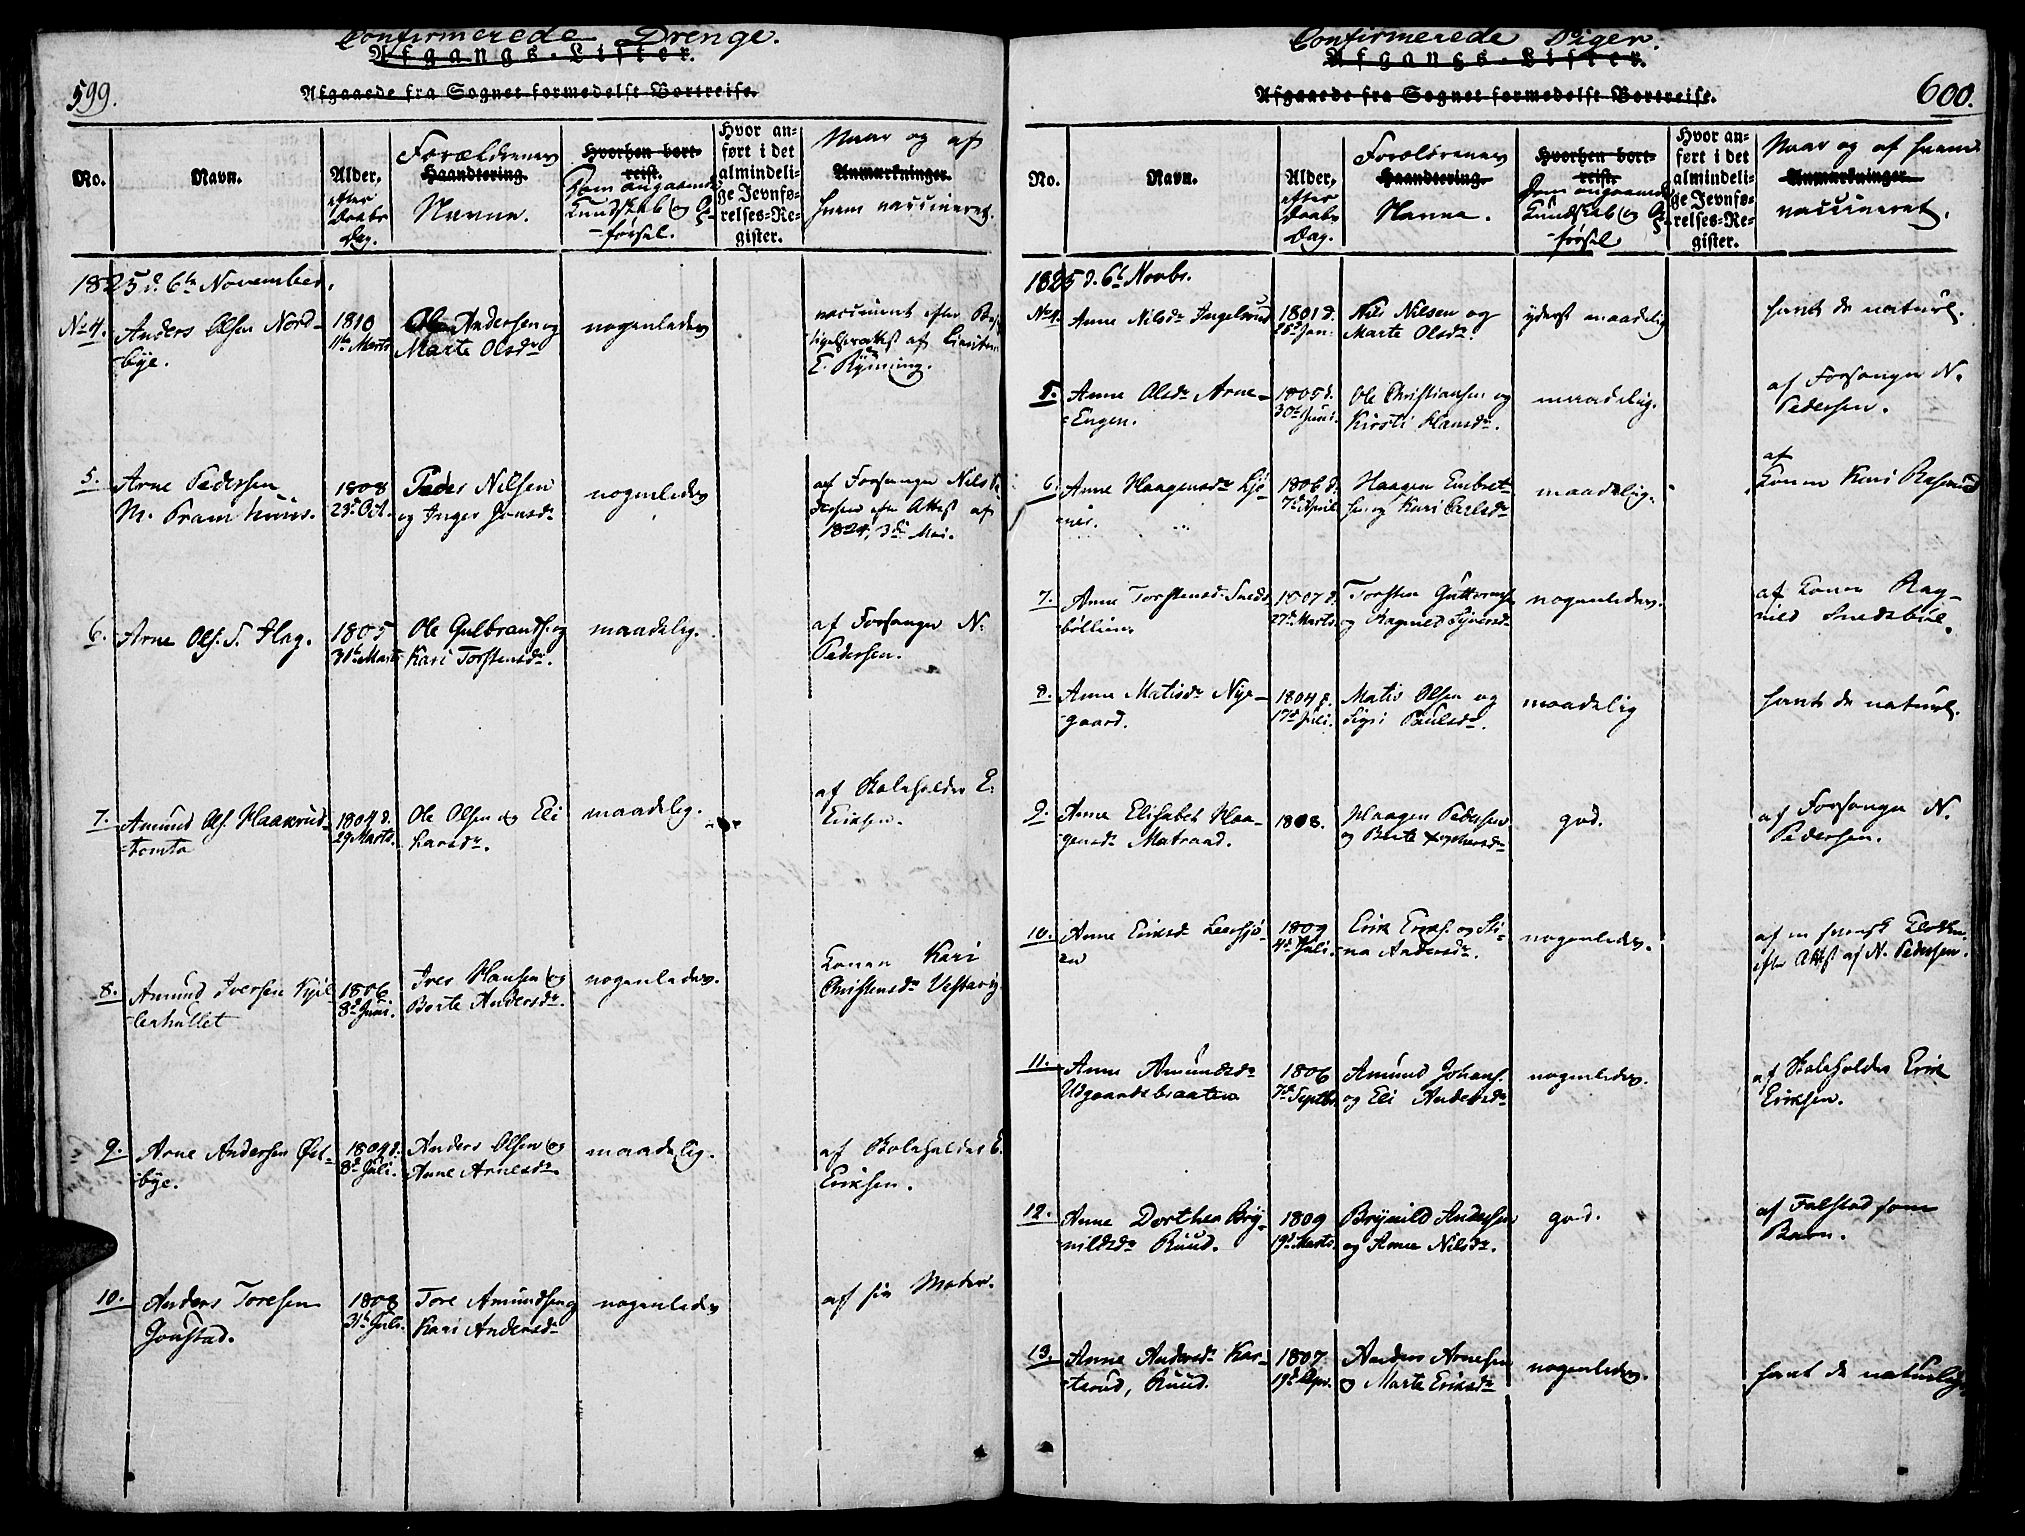 599.
Confirmerede Drenge.
Afgangs-Lister.
Afgaaede fra Sognet formedelst Bortreise.
No.
Navn.
Alder,
efter
Daabs
Dag.
Forældrenes
Haandtering.
Navne.
Hvorhen bort-
reist.
Dom angaaende
Kundskab og Op-
førsel.
Hvor an-
ført i det
almindeli-
ge Jevnfø-
relses-Re-
gister.
Naar og af
Anmærkninger.
hvem vaccineret.
1825 d. 6te November.
No 4. Anders Olsen Nord-
bye.
1810
11te Marts
Ole Andersen og
Marte Olsdr
nogenledes
vaccineret efter
af
E. Rynning.
5. Arne Pedersen
M. Pramhuus.
1808
23d Oct.
Peder Nilsen
og Inger Jonsdr
nogenledes
af Forsanger Nils Pe-
dersen efter Attest af
1824, 3die Mai.
6. Arne Ols. S. Hag.
1805
31te Marts
Ole Gulbrands. og
Kari Torstensdr.
maadelig.
af Forsanger N.
Pedersen.
7. Amund Ols. Haakerud-
tomta
1804 d.
29 Marts.
Ole Olsen og Eli
Larsdr.
maadelig.
af Skoleholder E.
Eriksen.
8. Amund Iversen Kjil-
lerhullet
1806
8d Juni.
Iver Hansen og
Berte Andersdr.
nogenledes.
Konen Kari
Christensdr Vestavig
9. Arne Andersen Øst-
bye.
1809 d.
8d Juli.
Anders Olsen og
Anne Arnesdr.
maadelig.
af Skoleholder E.
Eriksen.
10. Anders Toresen
Jonstad.
1808
31te Juli.
Tore Amundsen og
Kari Andersdr
nogenledes
af sin Moder.
600.
Confirmerede Piger.
Afgangs-Lister.
Afgaaede fra Sognet formedelst Bortreise.
No.
Navn.
Alder,
efter
Daabs
Dag.
Forældrenes
Haandtering.
Navne.
Hvorhen bort-
reist.
Dom angaaende
Kundskab og Op-
førsel
Hvor an-
ført i det
almindeli-
ge Jevnfø-
relses-Re-
gister.
Naar og af hvem
Anmærkninger.
vaccineret.
1825 d. 6te Novbr.
No 4. Anne Nilsdr Ingelsrud
1801 d.
25d Jan.
Nils Nilsen og
Marte Olsdr.
yderst maadelig
havt de naturl.
5. Anne Olsdr Arne-
Engen.
1805 d.
30te Juni.
Ole Christiansen og
Kirsti Hansdr.
maadelig.
af Forsanger N.
Pedersen.
6. Anne Haagensdr Ljø-
ner.
1806 d.
7de April
Haagen Embret-
sen og Kari Carlsdr
maadelig.
af
Konen Kari Rasmus
7. Anne Torstensd. Sneds-
böllien.
1807 d.
27de Marts
Torsten Guttorms.
og Ragnild Syversdr
nogenledes.
af Konen Rag-
nild Snedsböl.
8. Anne Matisdr Nye-
gaard.
1804 d.
17de Juli.
Matis Olsen og
Sigri Paulsdr.
maadelig
havt de naturl.
9. Anne Elisabet Haa-
gensdr Matrand.
1808.
Haagen Pedersen
og Berte Xtophersdr
god.
af Forsanger N.
Pedersen.
10. Anne Eriksdr Leersjø-
en
1809
4de Juli.
Erik Eriks. og Sti-
na Andersdr.
nogenledes.
af en svensk Klokker
efter Attest af N. Pedersen.
11. Anne Amundsdr
Udgaardsbraaten
1806
7de Septbr.
Amund Johans.
og Eli Andersdr
nogenledes.
af Skoleholder Erik
Eriksen.
12. Anne Dorthea Bry-
nildsdr Ruud.
1809
19d Marts.
Brynild Andersen
og Anne Nilsdr.
god.
af Falstad som
Barn.
13. Anne Andersdr Kar-
terud, Ruud.
1807
19d Apr.
Anders Arnesen
og Marte Eriksdr
nogenledes.
havt de naturlig.